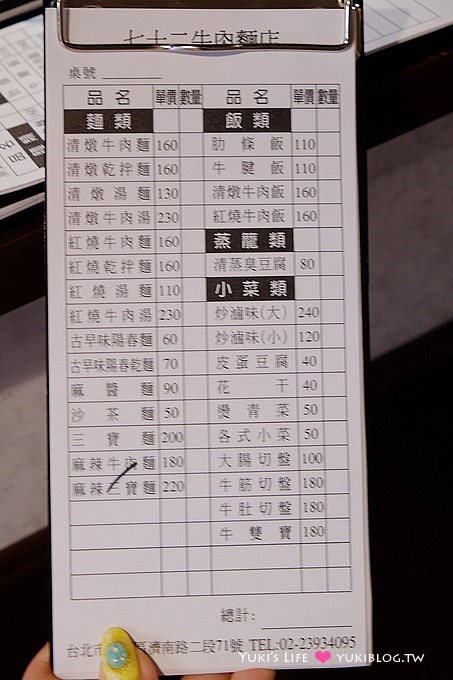 七十二牛肉麵店
桌號
品名 單價 數量 品名 單價 數量
麵類 飯類
清燉牛肉麵 160 肋條飯 110
清燉乾拌麵 160 牛腱飯 110
清燉湯麵 130 清燉牛肉飯 160
清燉牛肉湯 230 紅燒牛肉飯 160
紅燒牛肉麵 160 蒸籠類
紅燒乾拌麵 160 清蒸臭豆腐 80
紅燒湯麵 110 小菜類
紅燒牛肉湯 230 炒滷味(大) 240
古早味陽春麵 60 炒滷味(小) 120
古早味陽春乾麵 70 皮蛋豆腐 40
麻醬麵 90 花干 40
沙茶麵 50 燙青菜 50
三寶麵 200 各式小菜 50
麻辣牛肉麵 180 大腸切盤 100
麻辣三寶麵 220 牛筋切盤 180
牛肚切盤 180
牛雙寶 180
總計:
台北市 區濟南路二段71號 TEL:02-23934095
YUKI'S LIFE YUKIBLOG.TW